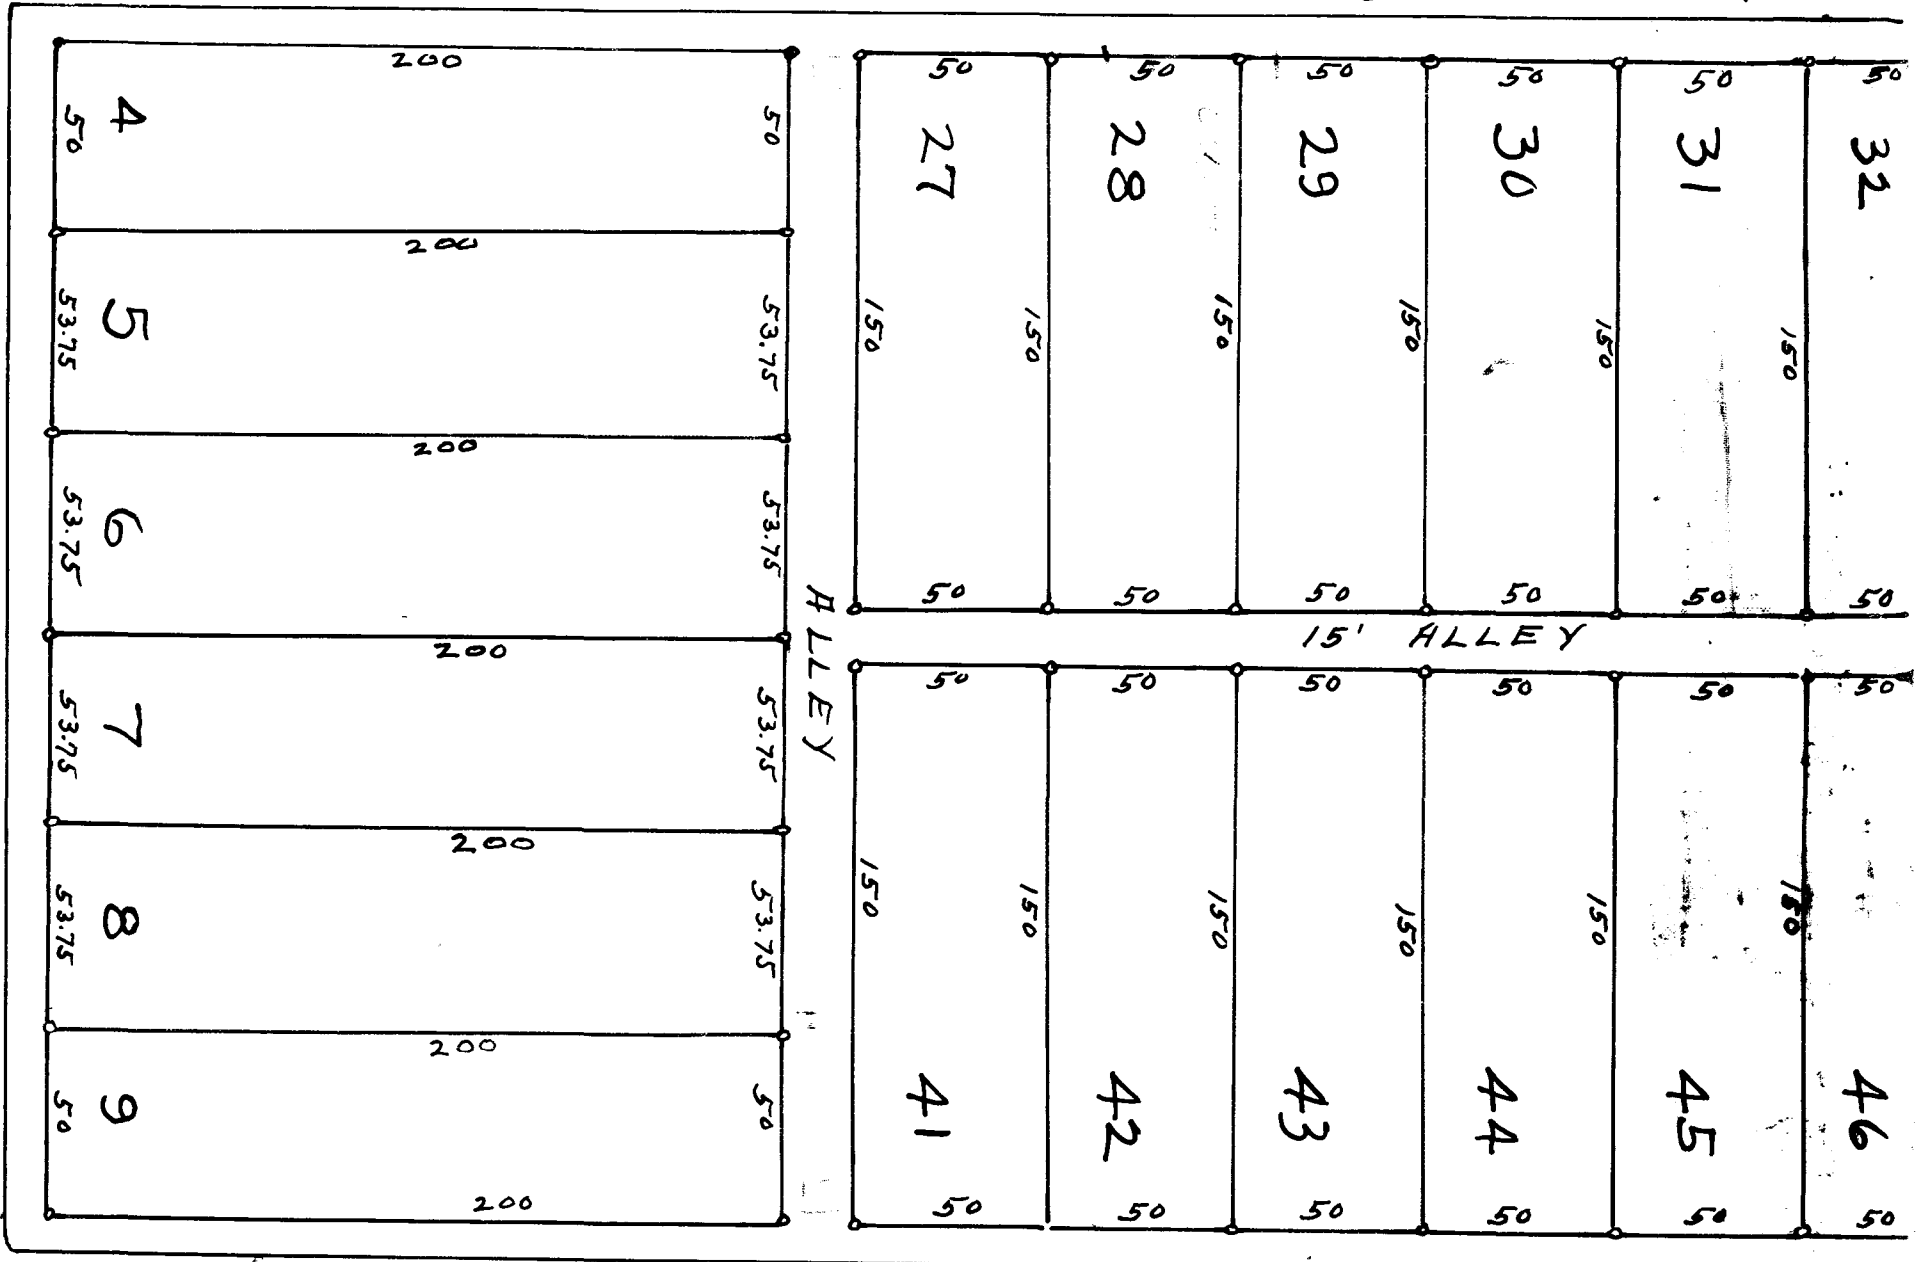 200
50 4 50
200
53.75 5 53.75
200
53.75 6 53.75
200
53.75 7 53.75
200
53.75 8 53.75
200
50 9 50
200
ALLEY
50 50 50 50 50 50
27 28 29 30 31 32
150 150 150 150 150 150
50 50 50 50 50 50
15' ALLEY
50 50 50 50 50 50
150 150 150 150 150 150
41 42 43 44 45 46
50 50 50 50 50 50